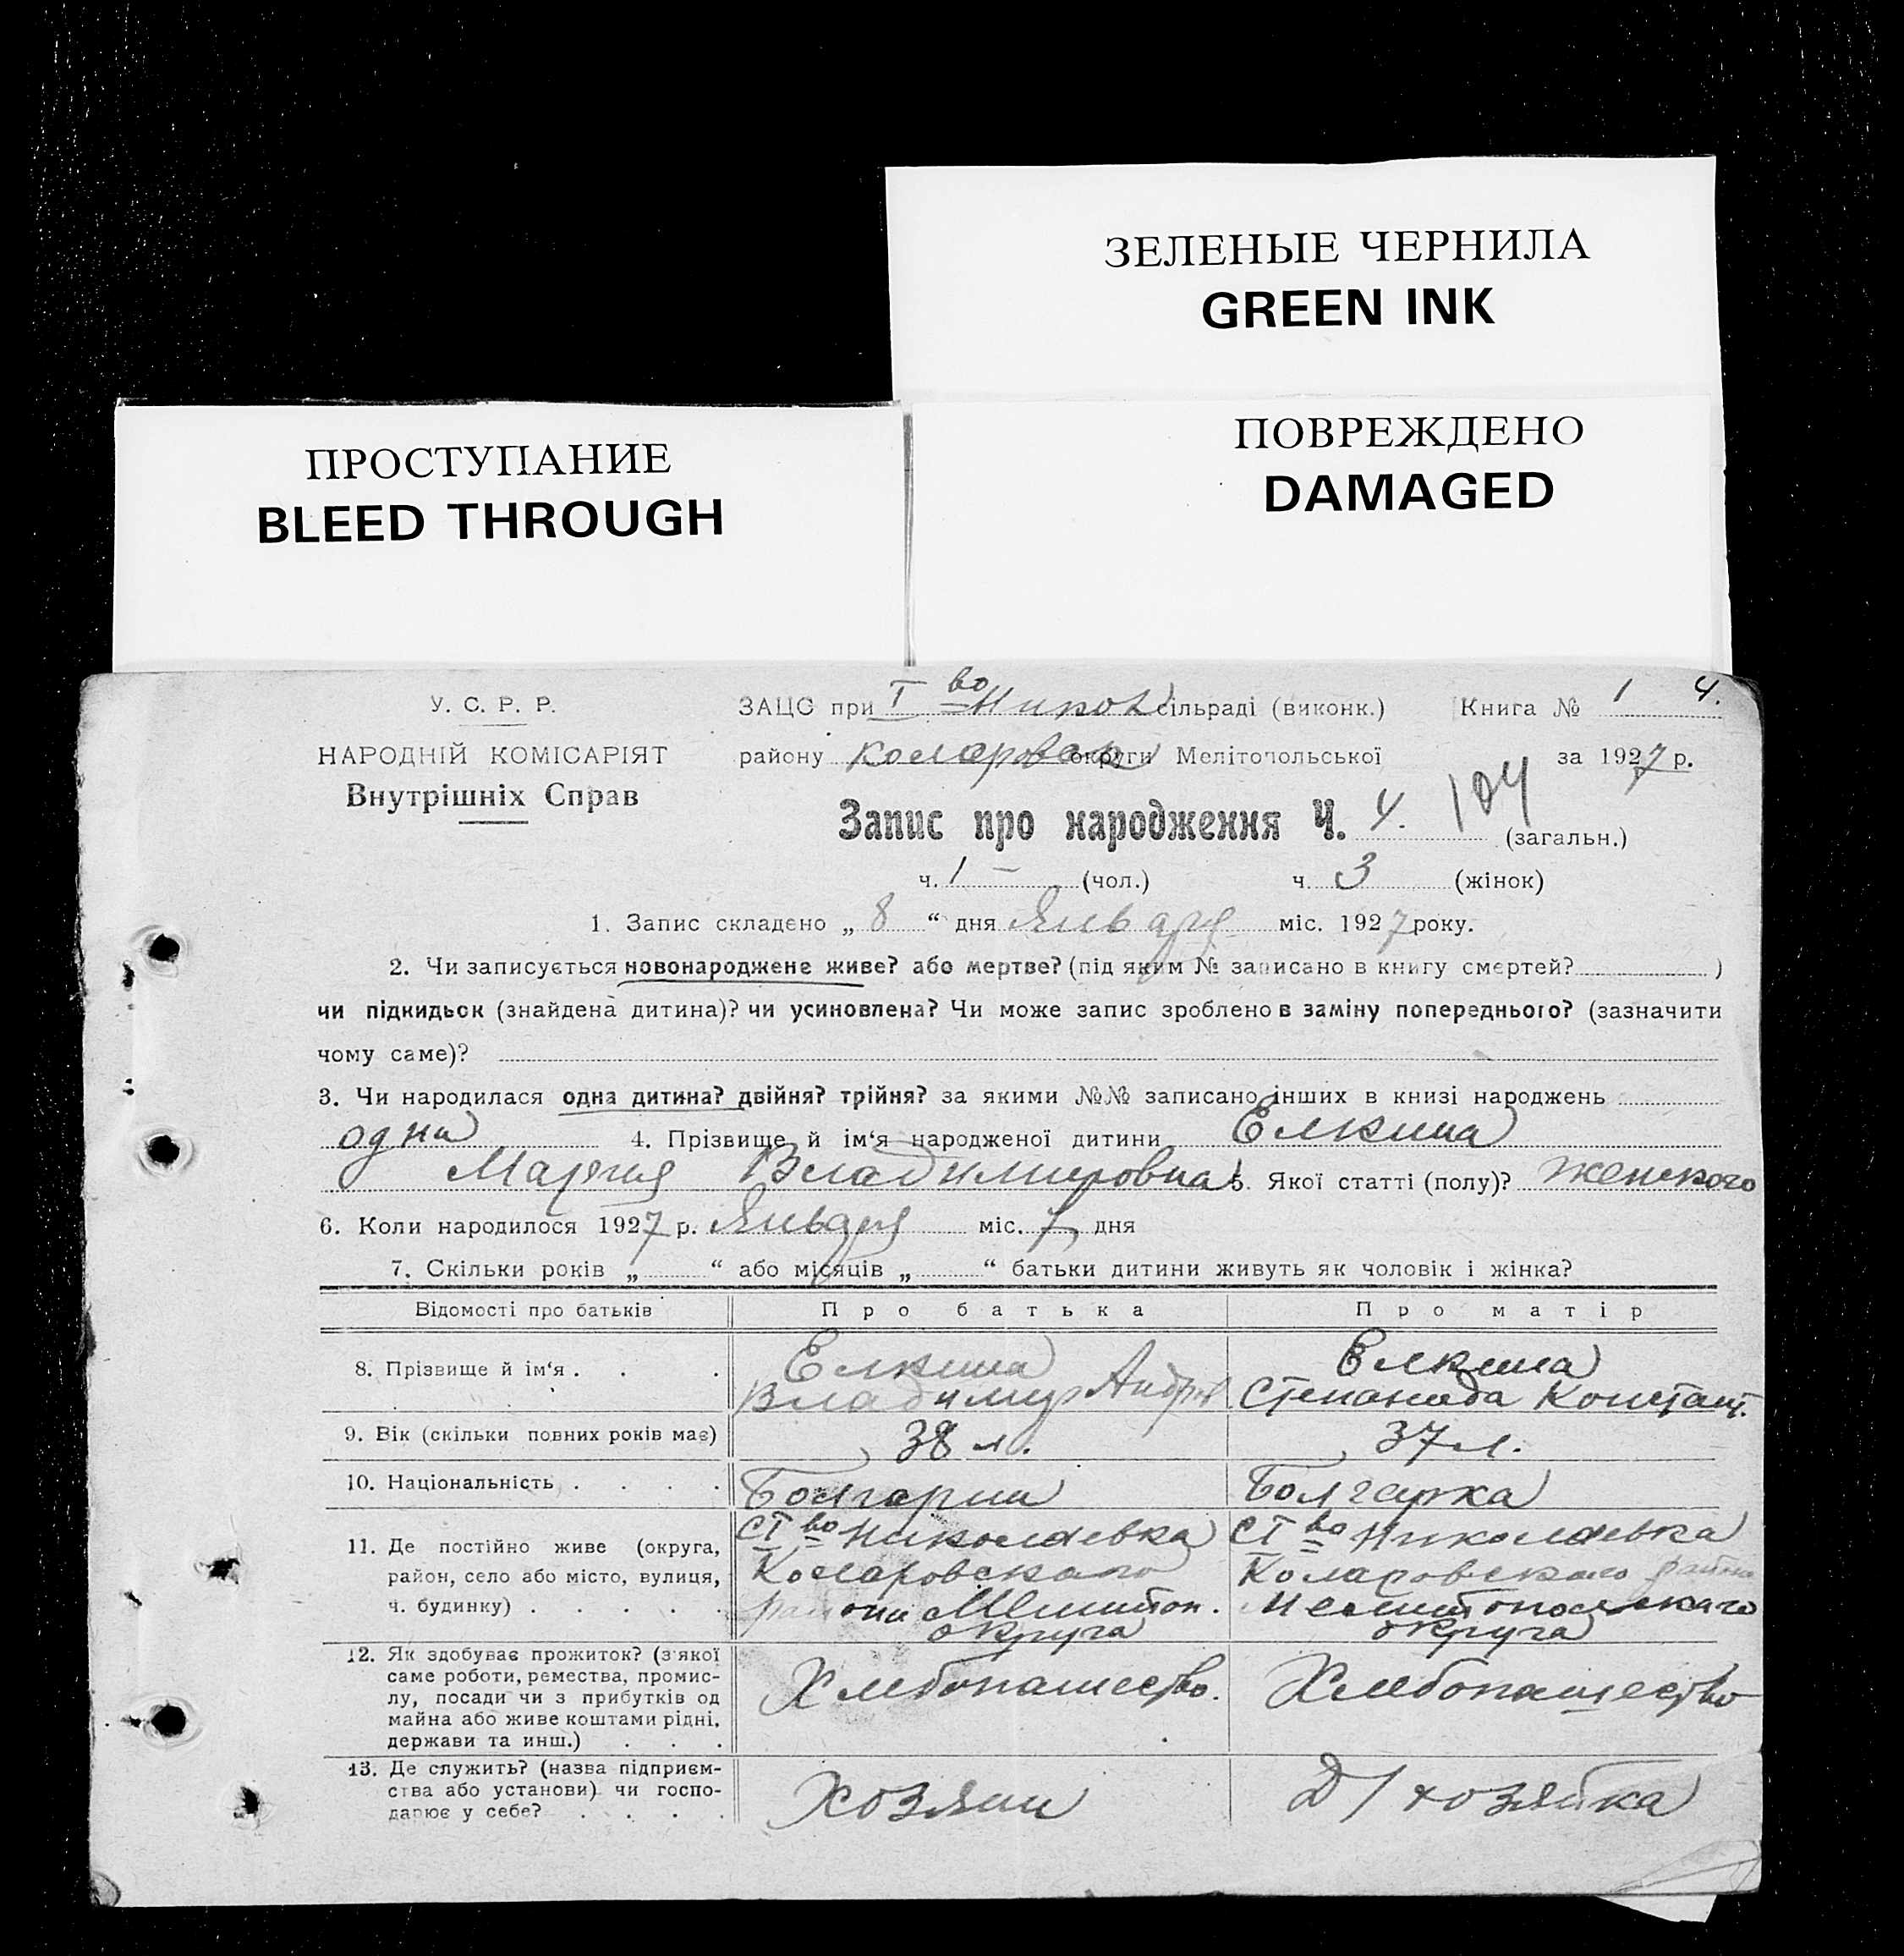 ЗЕЛЕНЫЕ ЧЕРНИЛА
GREEN INK
ПРОСТУПАНИЕ
BLEED THROUGH
ПОВРЕЖДЕНО
DAMAGED
У. С. Р. Р. ЗАЦС при I во Никол сільраді (виконк.) Книга № 1 4.
НАРОДНІЙ КОМІСАРІЯТ району Коларовск округи Мелітопольської за 1927 р.
Внутрішніх Справ
Запис про народження Ч. 4. 104 (загальн.)
ч. 1 – (чол.) ч. 3 (жінок)
1. Запис складено „ 8 “ дня Января міс. 1927 року.
2. Чи записується новонароджене живе? або мертве? (під яким № записано в книгу смертей? )
чи підкидьок (знайдена дитина)? чи усиновлена? Чи може запис зроблено в заміну попереднього? (зазначити
чому саме)?
3. Чи народилася одна дитина? двійня? трійня? за якими №№ записано інших в книзі народжень
одна 4. Прізвище й ім‘я народженої дитини Елкина
Мария Владимировна 5. Якої статті (полу)? женского
6. Коли народилося 1927 р. Января міс. 7 дня
7. Скільки років „ “ або місяців „ “ батьки дитини живуть як чоловік і жінка?
Відомості про батьків Про батька Про матір
8. Прізвище й ім‘я . . . Елкина Елкина
Владимир Андр Степанида Констант.
9. Вік (скільки повних років має) 38 л. 37 л.
10. Національність . . . . Болгарин Болгарка
11. Де постійно живе (округа, район, село або місто, вулиця, ч. будинку) . . . . .
с I во Николаевка с I во Николаевка
Коларовского Коларовского района
района Мелитоп. Мелитопольского
округа округа
12. Як здобуває прожиток? (з'якої
саме роботи, ремества, промис-
лу, посади чи з прибутків од
майна або живе коштами рідні,
держави та инш.) . . .
Хлебопашество. Хлебопашество
13. Де служить? (назва підприєм-
ства або установи) чи госпо-
дарює у себе? . . . .
Хозяин Д/хозяйка